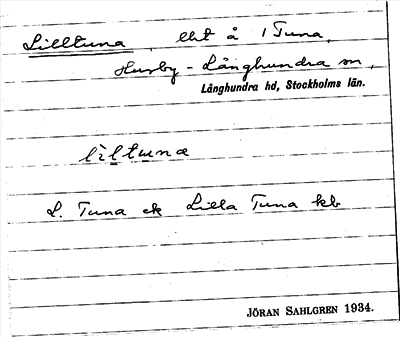 Lilltuna, lht å 1 Tuna,
Husby-Långhundra sn,
Långhundra hd, Stockholms län.
liltuna
L. Tuna ek Lilla Tuna kb
JÖRAN SAHLGREN 1934.